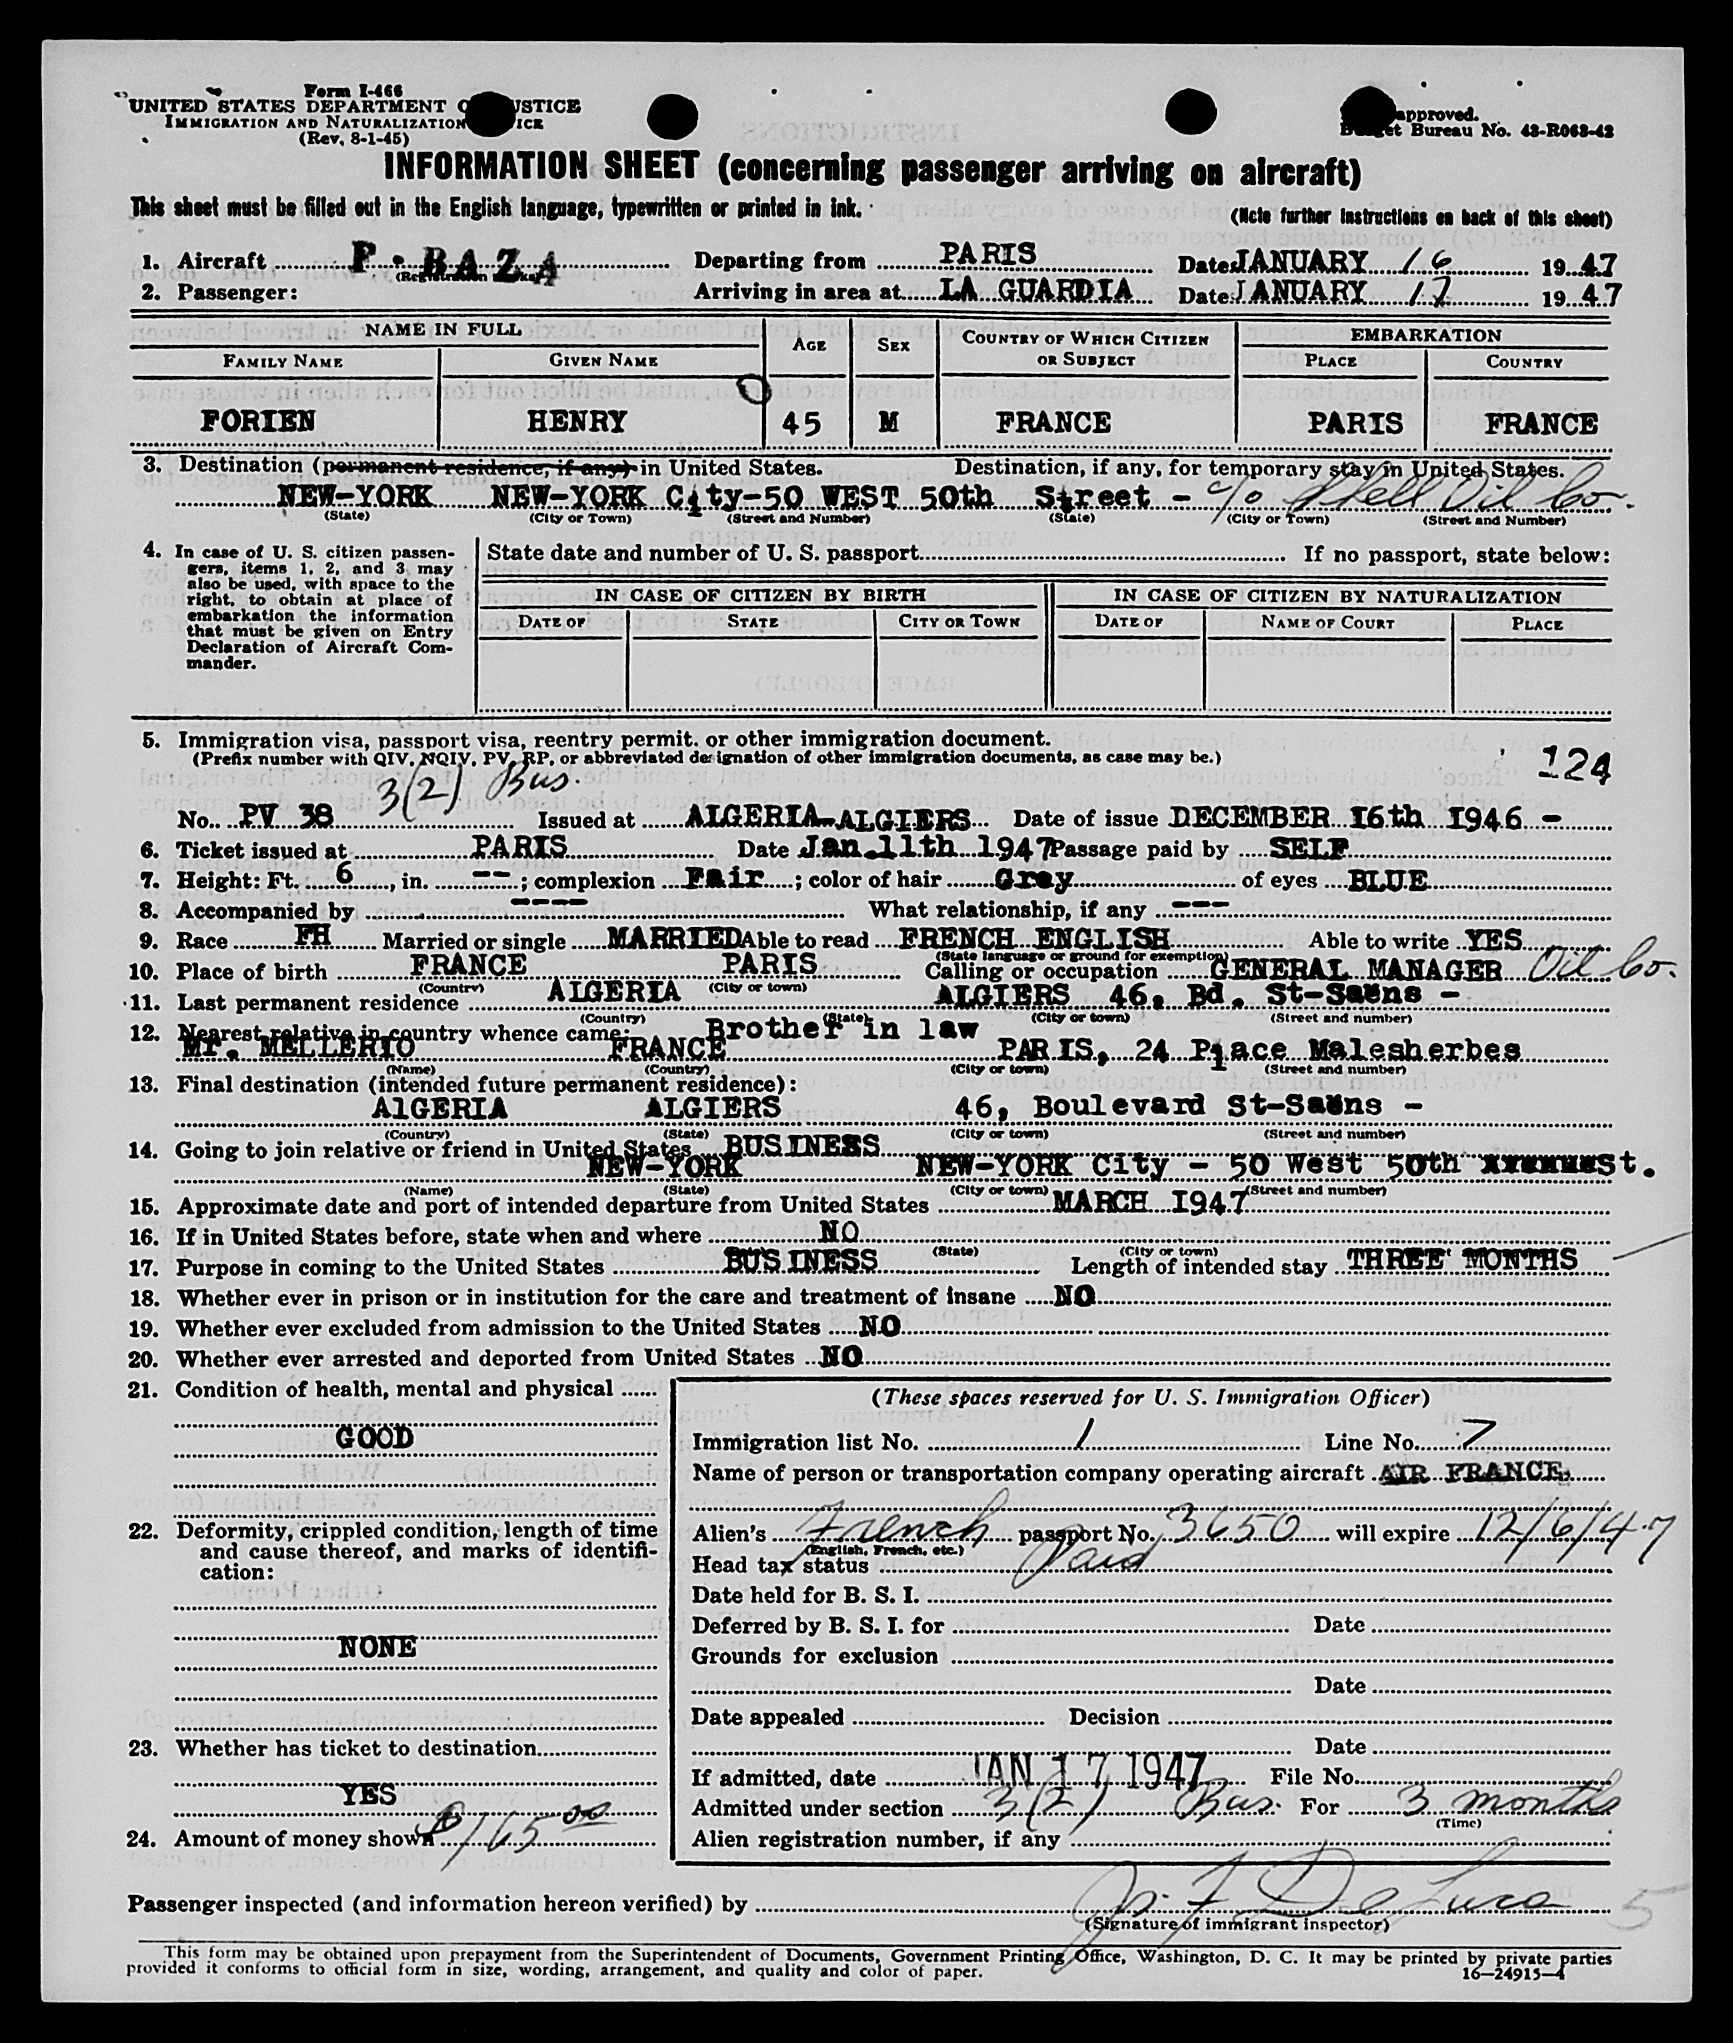 Form I-466
UNITED STATES DEPARTMENT OF JUSTICE
IMMIGRATION AND NATURALIZATION SERVICE
(Rev. 8-1-45)
approved.
Budget Bureau No. 43-R063-42
INFORMATION SHEET (concerning passenger arriving on aircraft)
This sheet must be filled out in the English language, typewritten or printed in ink.
(Note further instructions on back of this sheet)
1. Aircraft F.BAZA Departing from PARIS Date JANUARY 16 1947
(Registration marks)
2. Passenger: Arriving in area at LA GUARDIA Date JANUARY 17 1947
NAME IN FULL AGE SEX COUNTRY OF WHICH CITIZEN OR SUBJECT EMBARKATION
FAMILY NAME GIVEN NAME PLACE COUNTRY
FORIEN HENRY 45 M FRANCE PARIS FRANCE
3. Destination (permanent residence, if any) in United States. Destination, if any, for temporary stay in United States.
NEW-YORK NEW-YORK City-50 WEST 50th Street - c/o Shell Oil Co.
(State) (City or Town) (Street and Number) (State) (City or Town) (Street and Number)
4. In case of U. S. citizen passengers, items 1, 2, and 3 may also be used, with space to the right, to obtain at place of embarkation the information that must be given on Entry Declaration of Aircraft Commander.
State date and number of U. S. passport If no passport, state below:
IN CASE OF CITIZEN BY BIRTH IN CASE OF CITIZEN BY NATURALIZATION
DATE OF STATE CITY OR TOWN DATE OF NAME OF COURT PLACE
5. Immigration visa, passport visa, reentry permit, or other immigration document.
(Prefix number with QIV, NQIV, PV, RP, or abbreviated designation of other immigration documents, as case may be.)
124
3(2) Bus.
No. PV 38 Issued at ALGERIA-ALGIERS Date of issue DECEMBER 16th 1946 -
6. Ticket issued at PARIS Date Jan.11th 1947 Passage paid by SELF
7. Height: Ft. 6, in. --; complexion Fair; color of hair Gray of eyes BLUE
8. Accompanied by ---- What relationship, if any ---
9. Race FH Married or single MARRIED Able to read FRENCH ENGLISH Able to write YES
(State language or ground for exemption)
10. Place of birth FRANCE PARIS Calling or occupation GENERAL MANAGER Oil Co.
(Country) (City or town)
11. Last permanent residence ALGERIA ALGIERS 46, Bd. St-Saëns -
(Country) (State) (City or town) (Street and number)
12. Nearest relative in country whence came: Brother in law
Mr. MELLERIO FRANCE PARIS, 24 Place Malesherbes
(Name) (Country) (City or town) (Street and number)
13. Final destination (intended future permanent residence):
AlGERIA ALGIERS 46, Boulevard St-Saëns -
(Country) (State) (City or town) (Street and number)
14. Going to join relative or friend in United States BUSINESS
NEW-YORK NEW-YORK City - 50 West 50th St.
(Name) (State) (City or town) (Street and number)
15. Approximate date and port of intended departure from United States MARCH 1947
16. If in United States before, state when and where NO
(State) (City or town)
17. Purpose in coming to the United States BUSINESS Length of intended stay THREE MONTHS
18. Whether ever in prison or in institution for the care and treatment of insane NO
19. Whether ever excluded from admission to the United States NO
20. Whether ever arrested and deported from United States NO
21. Condition of health, mental and physical
GOOD
22. Deformity, crippled condition, length of time and cause thereof, and marks of identification:
NONE
23. Whether has ticket to destination
YES
24. Amount of money shown $165 00
(These spaces reserved for U. S. Immigration Officer)
Immigration list No. 1 Line No. 7
Name of person or transportation company operating aircraft AIR FRANCE
Alien's French passport No. 3650 will expire 12/6/47
(English, French, etc.)
Head tax status Paid
Date held for B. S. I.
Deferred by B. S. I. for Date
Grounds for exclusion
Date
Date appealed Decision
Date
If admitted, date JAN 17 1947 File No.
Admitted under section 3(2) Bus. For 3 months
(Time)
Alien registration number, if any
Passenger inspected (and information hereon verified) by De Luca 5
(Signature of immigrant inspector)
This form may be obtained upon prepayment from the Superintendent of Documents, Government Printing Office, Washington, D. C. It may be printed by private parties
provided it conforms to official form in size, wording, arrangement, and quality and color of paper.
16-24915-4